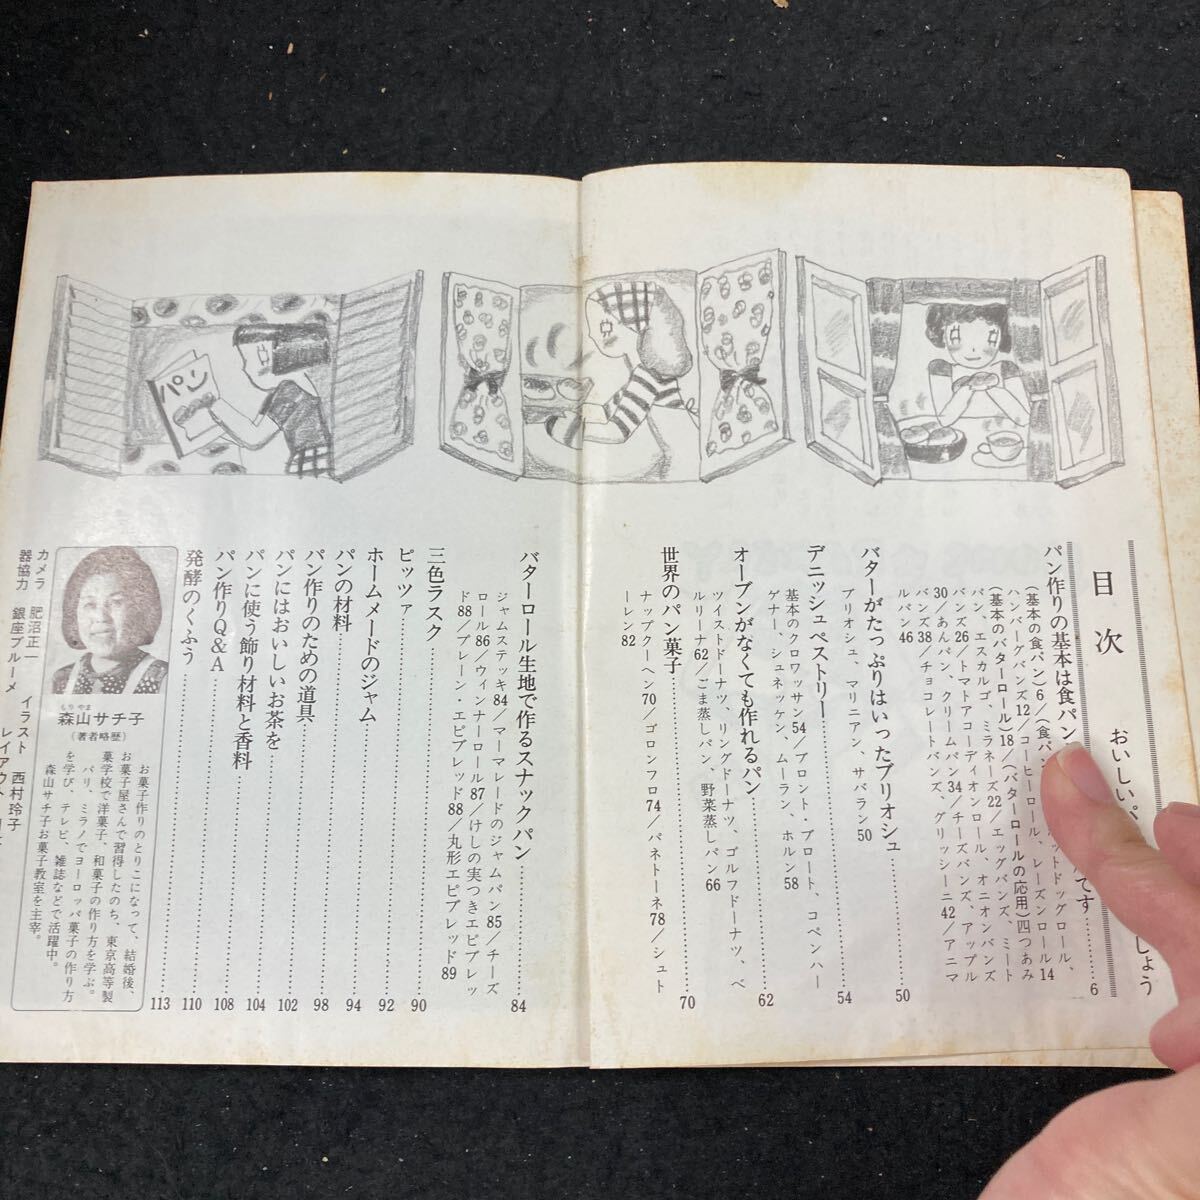 目次
おいしいパ
しょう
パン作りの基本は食パン
です……6
(基本の食パン)6/(食パ
ットドッグロール、
ハンバーグバンズ12/コーヒーロール、レーズンロール14
(基本のバターロール)18/(バターロールの応用)四つあみ
パン、エスカルゴ、ミラネーズ22/エッグバンズ、ミート
バンズ26/トマトアコーディオンロール、オニオンバンズ
30/あんパン、クリームパン34/チーズバンズ、アップル
バンズ38/チョコレートバンズ、グリッシーニ42/アニマ
ルパン46
バターがたっぷりはいったブリオシュ……50
ブリオシュ、マリニアン、サバラン50
デニッシュペストリー……54
基本のクロワッサン54/ブロント ブロート、コペンハー
ゲナー、シュネッケン、ムーラン、ホルン58
オーブンがなくても作れるパン……62
ツイストドーナツ、リングドーナツ、ゴルフドーナツ、ベ
ルリーナ62/ごま蒸しパン、野菜蒸しパン66
世界のパン菓子……70
ナップクーヘン70/ゴロンフロ74/パネトーネ78/シュト
ーレン82
バターロール生地で作るスナックパン……84
ジャムステッキ84/マーマレードのジャムパン85/チーズ
ロール86/ウィンナーロール87/けしの実つきエピブレッ
ド88/プレーン・エピブレッド88/丸形エピブレッド89
三色ラスク……90
ピッツァ……92
ホームメードのジャム……94
パンの材料……98
パン作りのための道具……102
パンにはおいしいお茶を……104
パンに使う飾り材料と香料……108
パン作りQ&A……110
発酵のくふう……113
パン
もりやま
森山サチ子
(著者略歴)
お菓子作りのとりこになって、結婚後、
お菓子屋さんで習得したのち、東京高等製
菓学校で洋菓子、和菓子の作り方を学ぶ。
パリ、ミラノでヨーロッパ菓子の作り方
を学び、テレビ、雑誌などで活躍中。
森山サチ子お菓子教室を主宰。
カメラ 肥沼正一 イラスト 西村玲子
器協力 銀座ブルーメ レイアウト